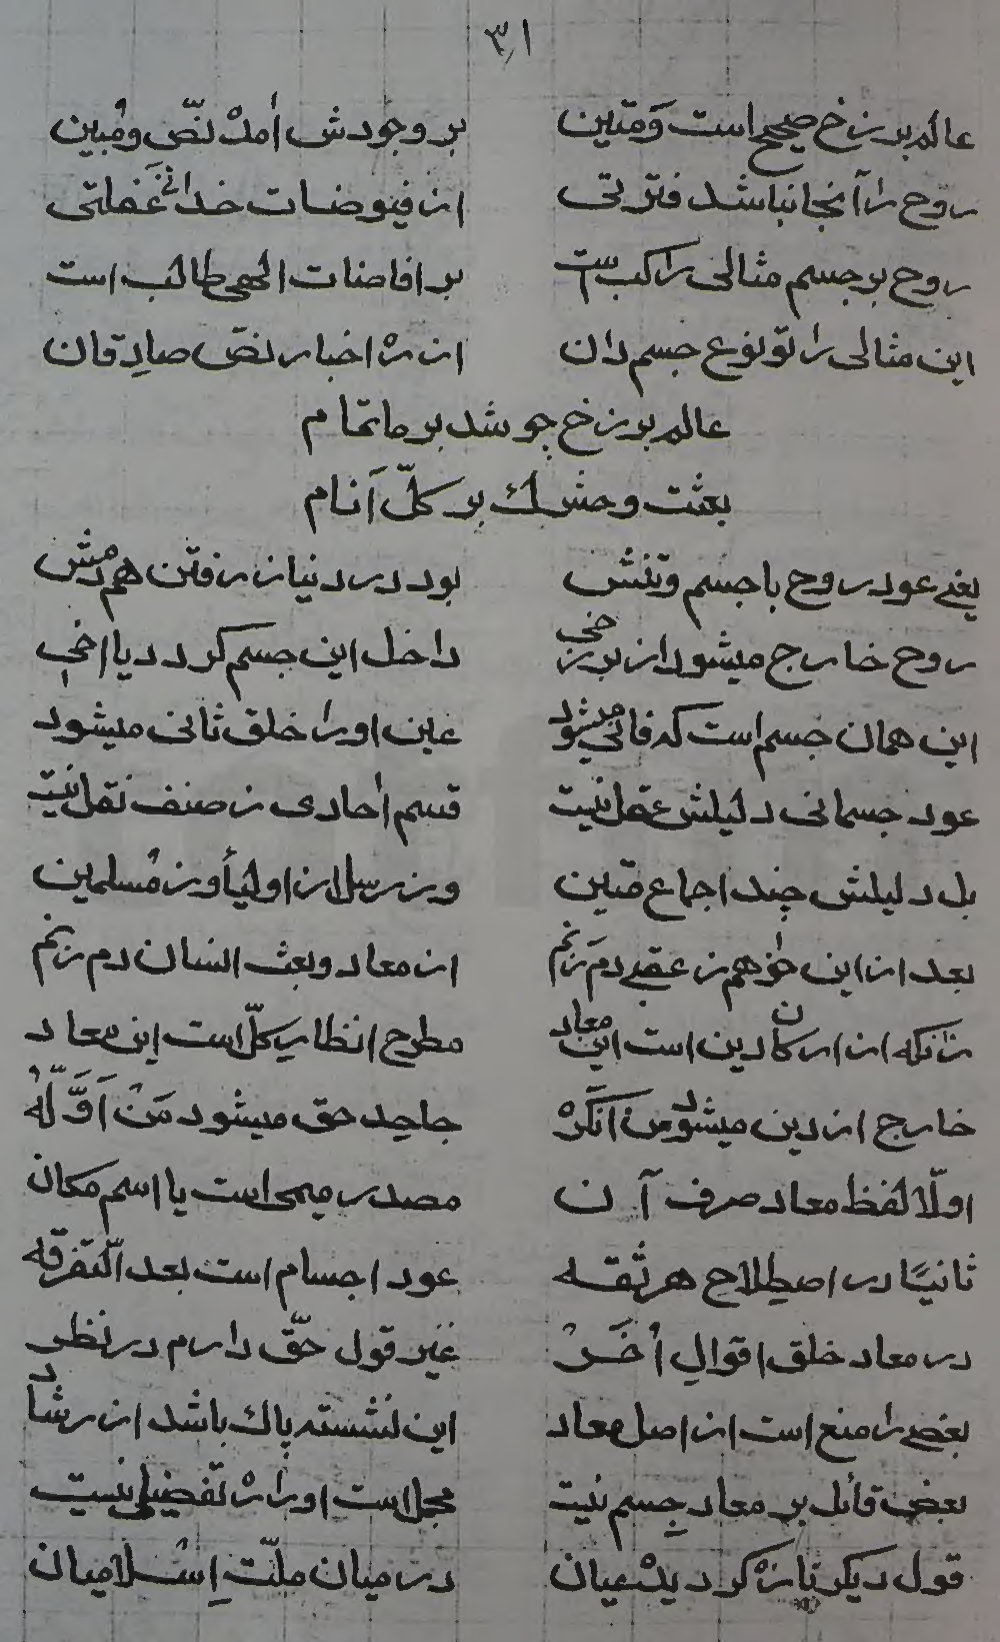 ٣١
عالم برزخ صحیح است و مَتین بر وجودش اٰمدْ نصّ و مُبین
روح را آنجا نباشد فترتی از فیوضات خدائی غَفلتی
روح بر جسم مثالی راکب است بر افاضات الهی طالب است
این مثالی را تو نوع جسم دان از رهْ اخبار نصّ صادِقان
عالم برزخ چو شد بر ما تمام
بعثت و حشرک بر کلّ اَنام
یعنی عود روح با جسم و تنش بود در دنیا ز رفتن همدمش
روح خارج میشود از برزخی داخل این جسم گردد یا اخی
این همان جسم است که فانی میشود عین او را خلق ثانی میشود
عود جسمانی دلیلش عقل نیست قسم اٰحادی ز صنف نقل نیست
بل دلیلش چند اجماع متین وز رسل از اولیأ وز مُسلمین
بعد از این خواهم ز عقبی دم زنم از معاد و بعث انسان دم زنم
زآنکه از ارکان دین است این معاد مطرح انظار کلّ است این معاد
خارج از دین میشود مَن اَنکَرهْ جاحِد حق میشود مَنْ اَوَّلَهْ
اولّا لفظ معاد صرف آن مصدر میمی است یا اسم مکان
ثانیًا در اصطلاح هر ثقه عود اجسام است بعد التّفرقه
در معاد خلق اقوالِ اُخَرْ غیر قول حّق دارم در نظر
بعضی را منع است از اصل معاد این نشسته پاک باشد از رشاد
بعضی قائل بر معاد جِسم نیست مجمل است او را رهْ تفضیلی نیست
قول دیگر تازهْ گردیدْ عیان در میان ملّتِ اِسْلامیان